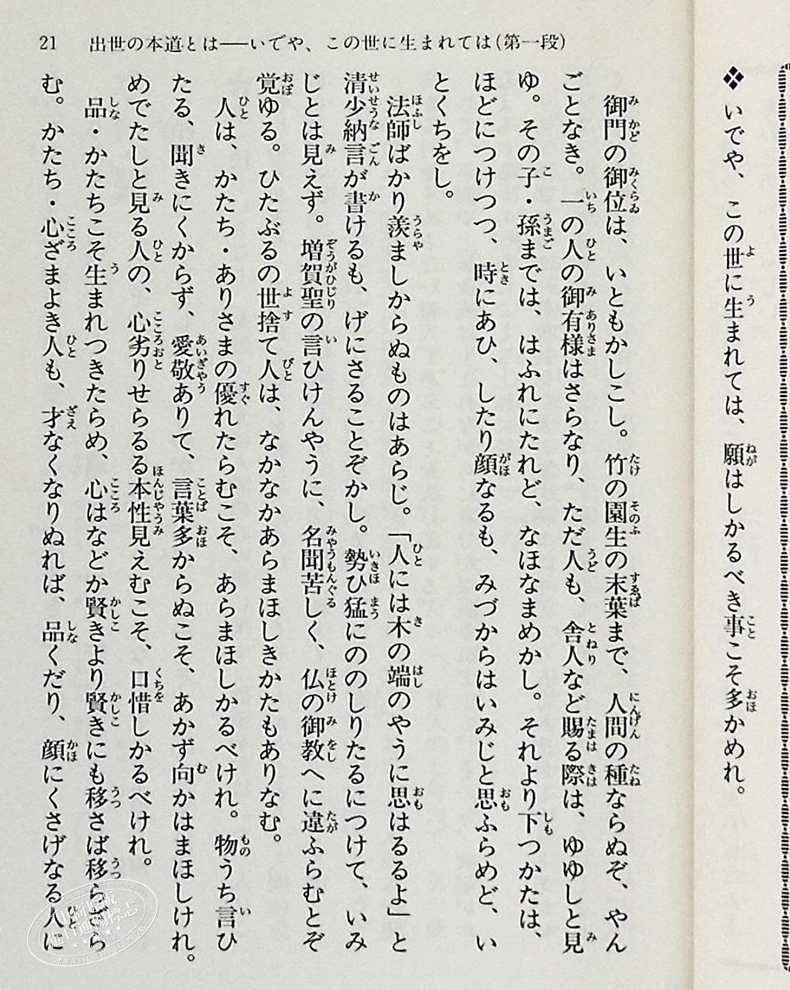 21 出世の本道とは――いでや、この世に生まれては(第一段)
❖いでや、この世に生まれては、願はしかるべき事こそ多かめれ。
御門の御位は、いともかしこし。竹の園生の末葉まで、人間の種ならぬぞ、やん
ごとなき。一の人の御有様はさらなり、ただ人も、舎人など賜る際は、ゆゆしと見
ゆ。その子・孫までは、はふれにたれど、なほなまめかし。それより下つかたは、
ほどにつけつつ、時にあひ、したり顔なるも、みづからはいみじと思ふらめど、い
とくちをし。
法師ばかり羨ましからぬものはあらじ。「人には木の端のやうに思はるるよ」と
清少納言が書けるも、げにさることぞかし。勢ひ猛にののしりたるにつけて、いみ
じとは見えず。増賀聖の言ひけんやうに、名聞苦しく、仏の御教へに違ふらむとぞ
覚ゆる。ひたぶるの世捨て人は、なかなかあらまほしきかたもありなむ。
人は、かたち・ありさまの優れたらむこそ、あらまほしかるべけれ。物うち言ひ
たる、聞きにくからず、愛敬ありて、言葉多からぬこそ、あかず向かはまほしけれ。
めでたしと見る人の、心劣りせらるる本性見えむこそ、口惜しかるべけれ。
品・かたちこそ生まれつきたらめ、心はなどか賢きより賢きにも移さば移らざら
む。かたち・心ざまよき人も、才なくなりぬれば、品くだり、顔にくさげなる人に